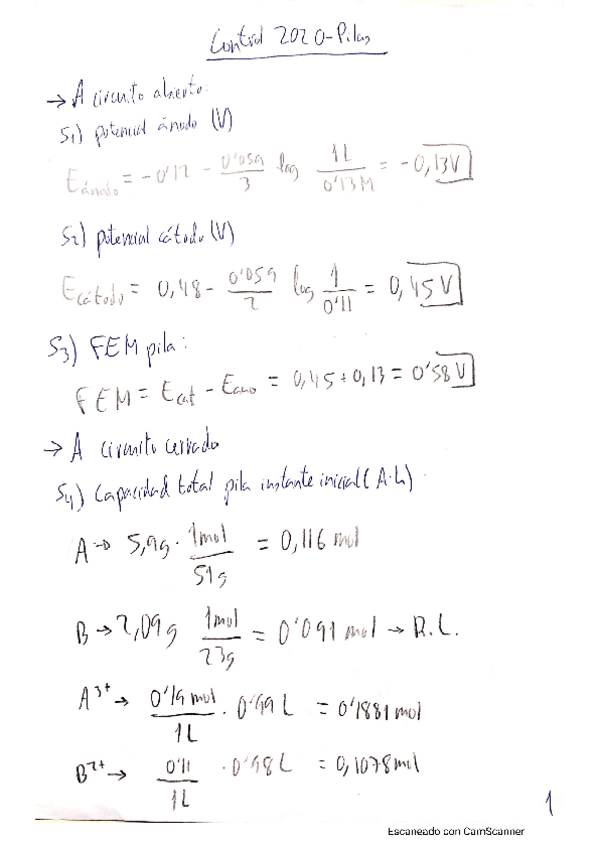 Control 2020-Pilas
→ A circuito abierto:
S1) potencial ánodo (V)
Eánodo = -0'12 - 0'059/3 log 1L/0'13M = -0,13V
S2) potencial cátodo (V)
Ecátodo = 0,48 - 0'059/2 log 1/0'11 = 0,45V
S3) FEM pila:
FEM = Ecat - Eano = 0,45 + 0,13 = 0'58V
→ A circuito cerrado
S4) Capacidad total pila instante inicial (A·h)
A → 5,9g · 1mol/51g = 0,116 mol
B → 2,09g 1mol/23g = 0'091 mol → R.L.
A3+ → 0'19 mol/1L · 0'99 L = 0'1881 mol
B2+ → 0'11/1L · 0'98L = 0,1078 mol
1
Escaneado con CamScanner